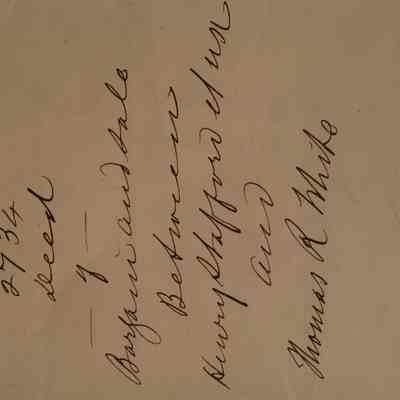 2734
Deed
of
Bargain and Sale
Between
Henry Stafford et ux
and
Thomas R White